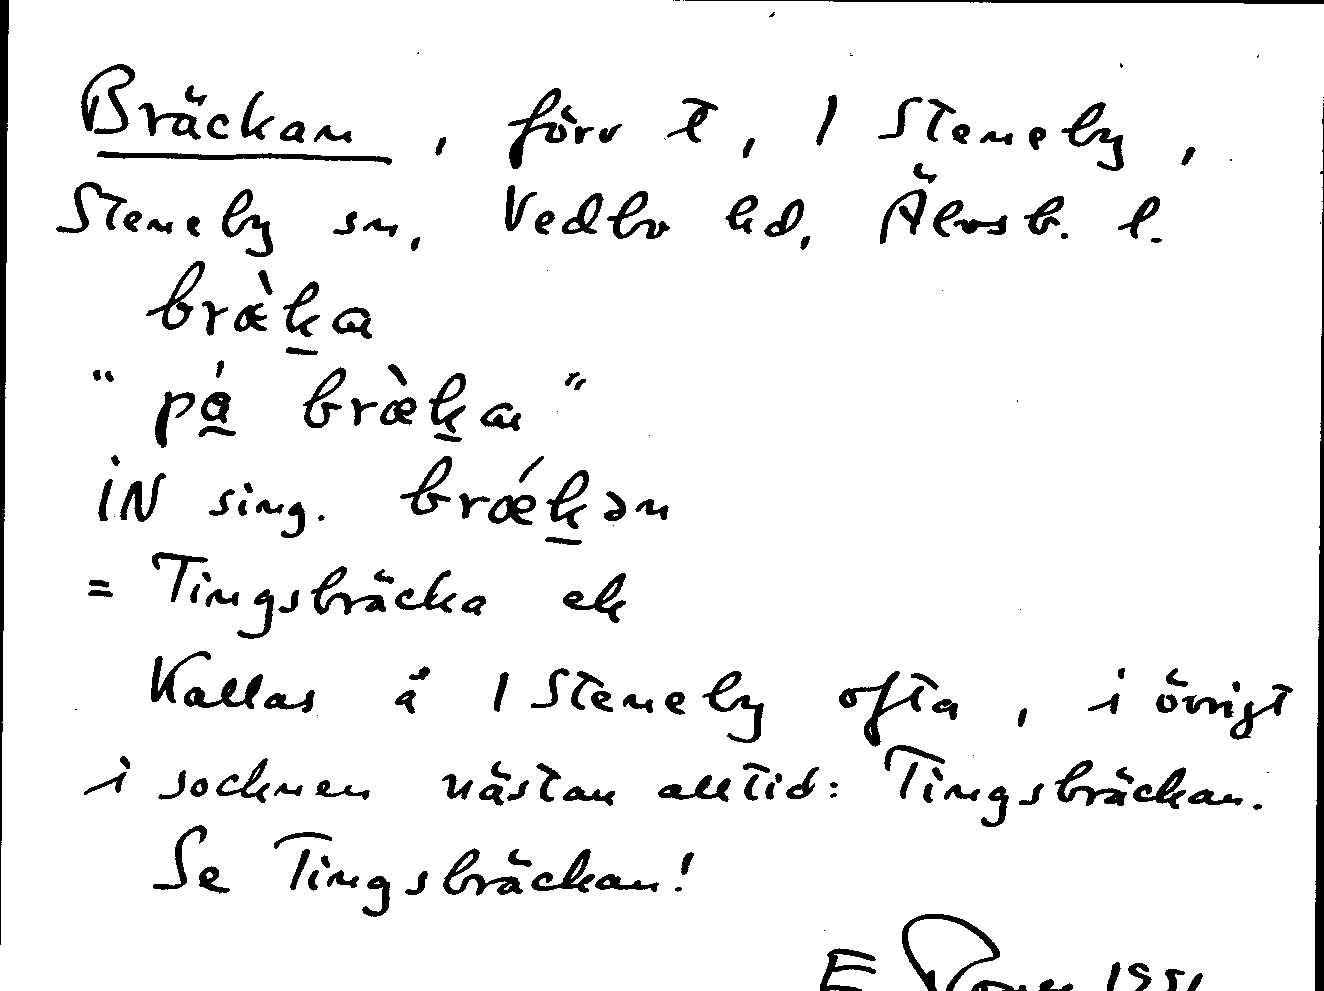 Bräckan, förv t, 1 Steneby,
Steneby sn, Vedbo hd, Älvsb. l.
bræ̀ḵa
"på̱ bræ̀ḵa"
iN sing. brǽḵən
= Tingsbräcka ek
Kallas å 1 Steneby ofta, i övrigt
i socknen nästan alltid: Tingsbräckan.
Se Tingsbräckan!
E